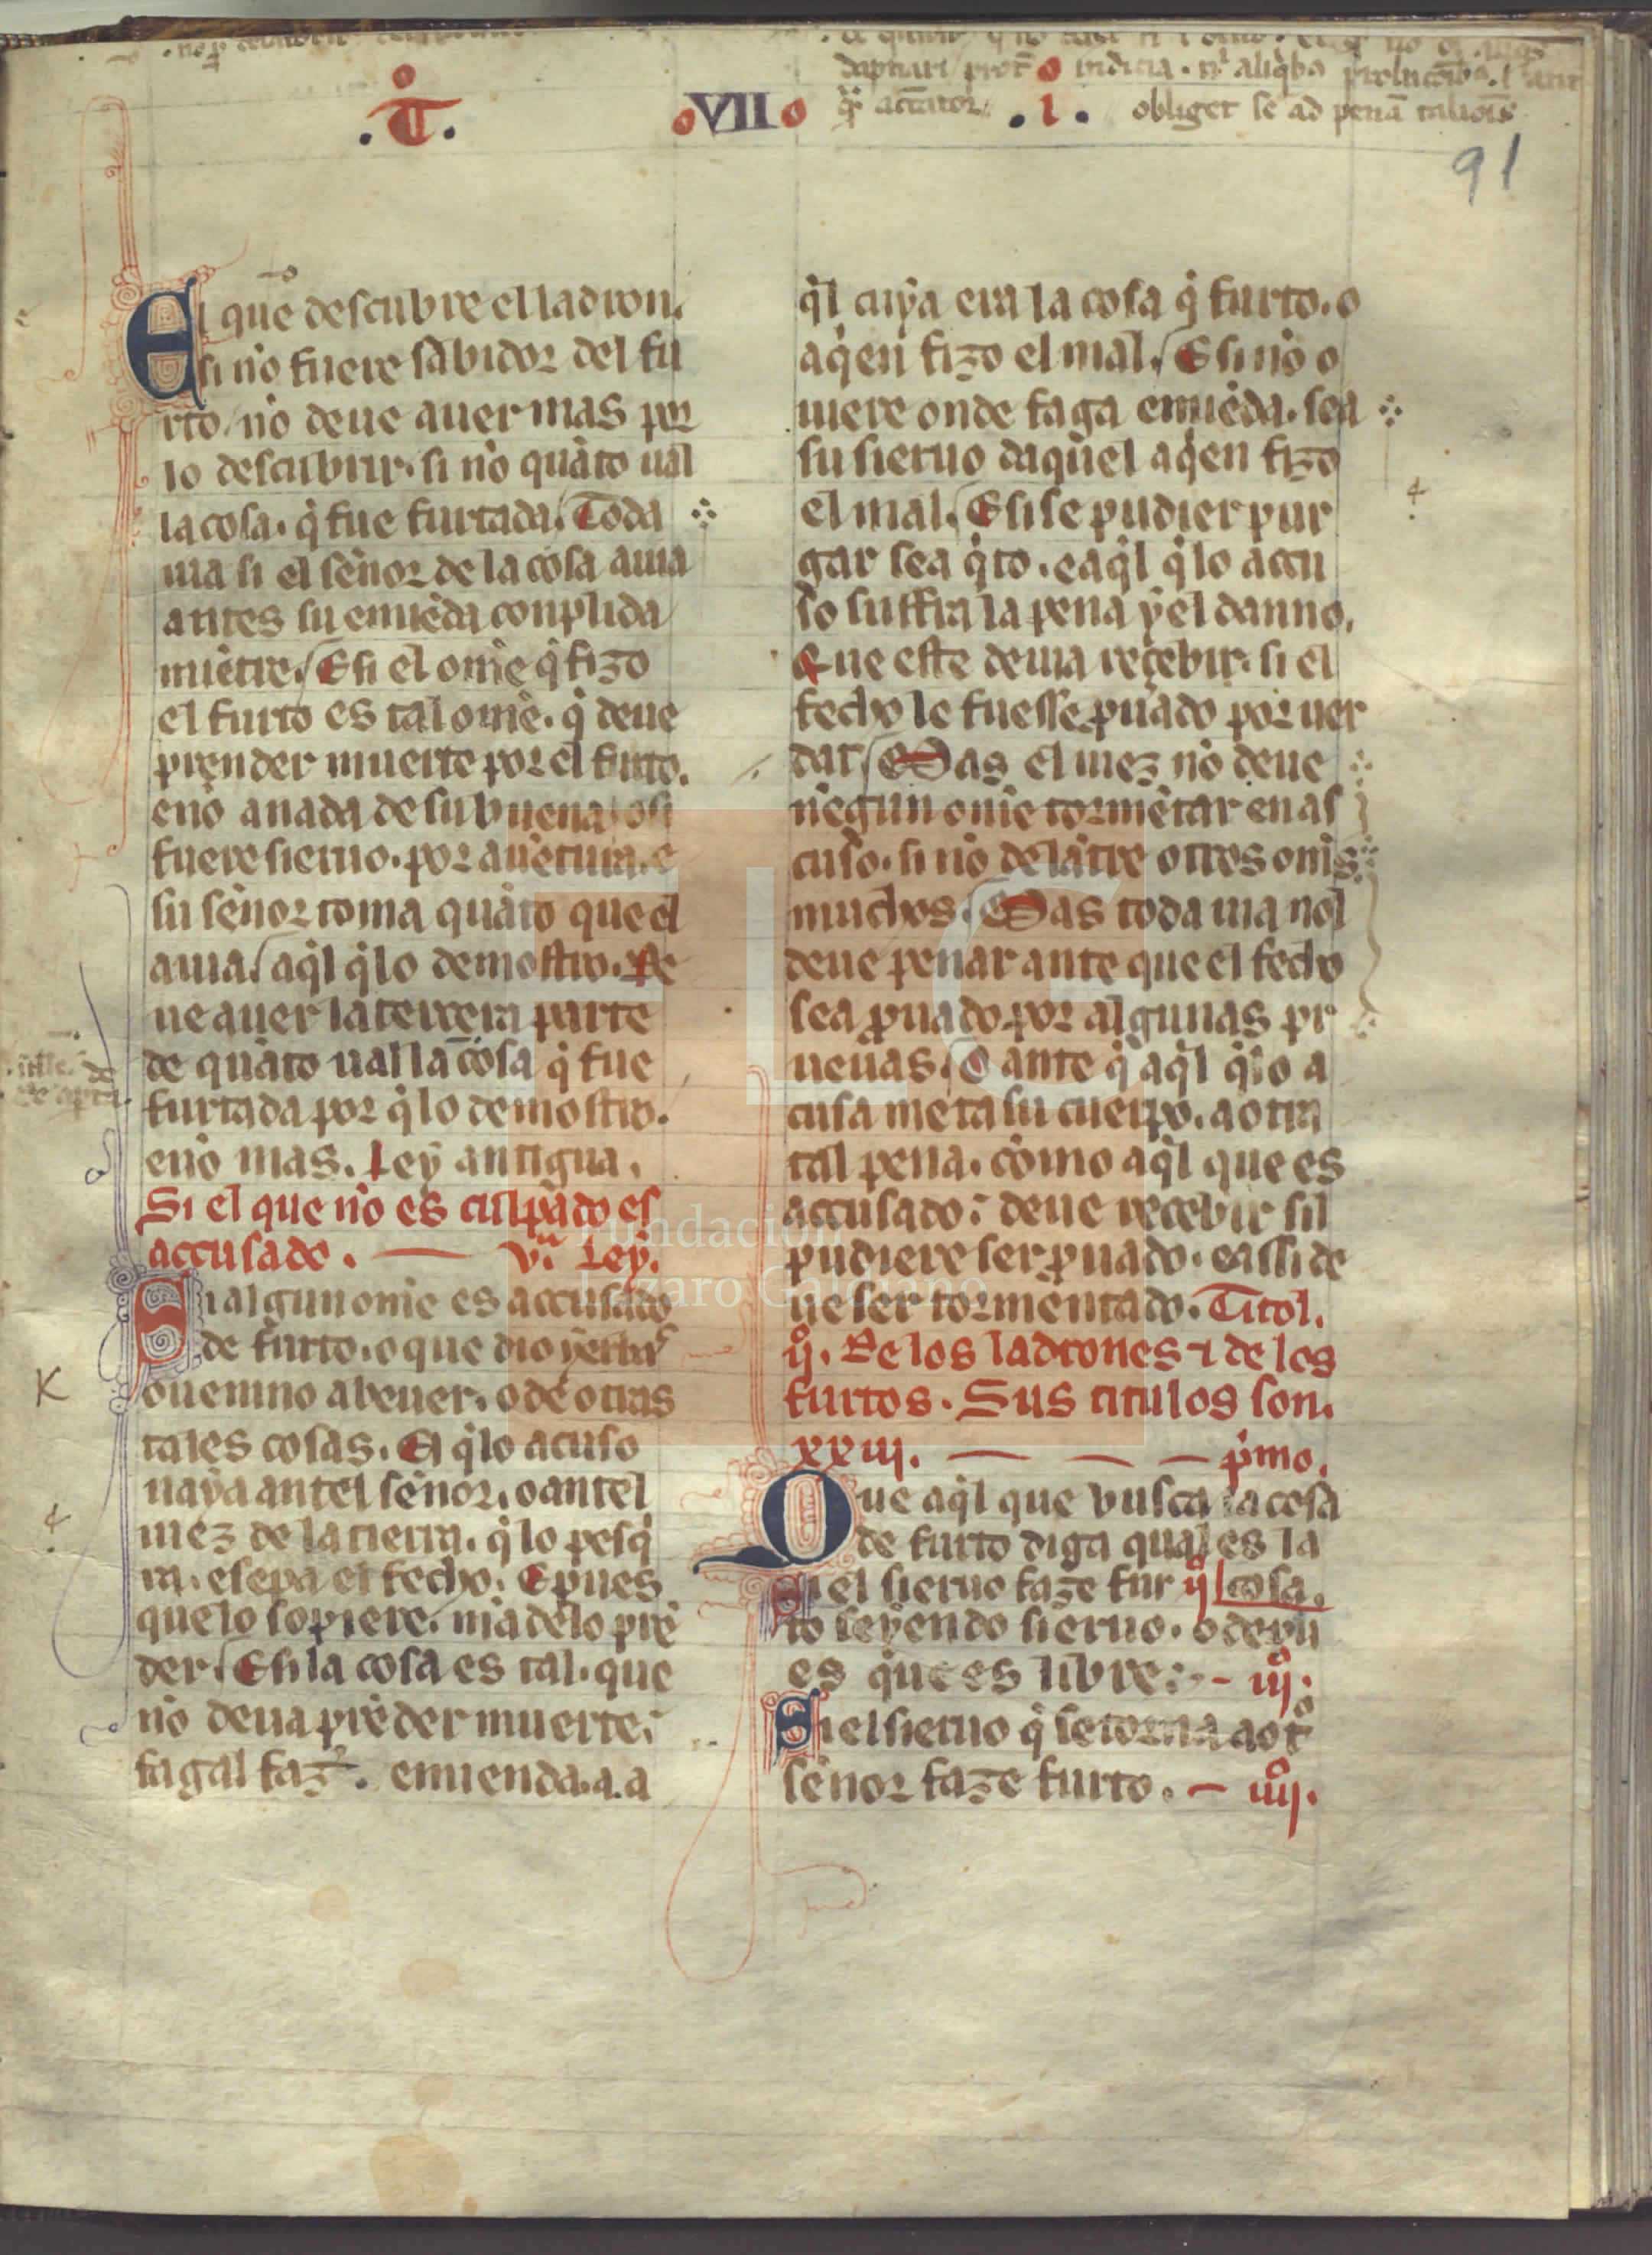 .T. VII .I.
dapnari
indicia
obliget se ad penã talionis
91
El que descubre el ladron.
si nõ fuere sabidor del fu
rto, nõ deue auer mas por
lo descubrir. si nõ quãto ual
la cosa. q̃ fue furtada. Toda
uia si el señor de la cosa auia
antes su emiẽda conplida
miẽtre. E si el omẽ q̃ fizo
el furto es tal omẽ. q̃ deue
prender muerte por el furto.
enõ a nada de su buena. o si
fuere sieruo. por auẽtura. e
su señor toma quãto que el
auia. aq̃l q̃ lo demostro. De
ue auer la tercera parte
de quãto ual la cosa q̃ fue
furtada por q̃ lo demostro.
enõ mas. Ley antigua.
Si el que nõ es culpado es
accusado. — vª. Ley.
Si algun omẽ es accusado
de furto. o que dio yerbas
o uenino a beuer. o de otras
tales cosas. El q̃ lo acuso
uaya antel señor. o antel
iuez de la tierra. q̃ lo pesq̃
ra. e sepa el fecho. E pues
que lo sopiere. mãdelo prẽ
der. E si la cosa es tal. que
nõ deua prẽder muerte.
fagal faz̃. emienda. a. a
q̃l cuya era la cosa q̃ furto. o
aq̃en fizo el mal. E si nõ o
uiere onde faga emiẽda. sea
su sieruo daquel aq̃en fizo
el mal. E si se pudier pur
gar sea q̃to. e aq̃l q̃ lo accu
so suffra la pena y el danno.
Que este deuia reçebir. si el
fecho le fuesse puado por uer
dat. Mas el iuez nõ deue
nẽgun omẽ tormẽtar en as
cuso. si nõ delãtre otros omẽs
muchos. Mas toda uia nol
deue penar ante que el fecho
sea puado por algunas pr
ueuas. O ante q̃ aq̃l q̃ lo a
cusa meta su cuerpo. a otra
tal pena. como aq̃l que es
accusado. deue reçebir sil
pudiere ser puado. e assi de
ue ser tormentado. Titol.
ij. De los ladrones ⁊ de los
furtos. Sus titulos son.
xxiij. — — — p̃mo.
Que aq̃l que busca la cosa
de furto diga qual es la
Si el sieruo faze fur ij cosa.
to seyendo sieruo. o depu
es que es libre. - iij.
Si el sieruo q̃ se torna a otº
señor faze furto. — iiij.
Fundación
Lázaro Galdiano